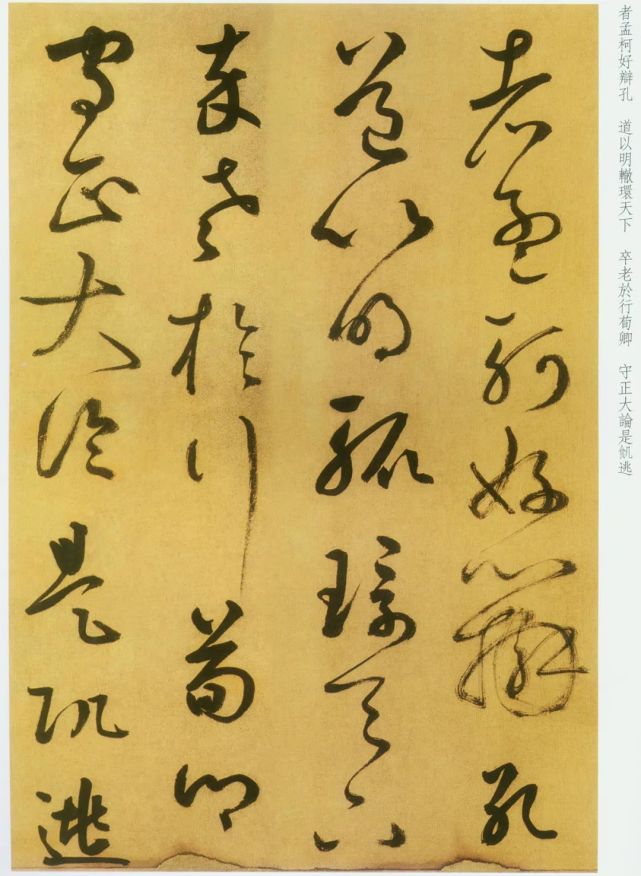 者孟軻好辯孔
道以明轍環天下
卒老於行荀卿
守正大論是
逃
者孟柯好辯孔　道以明轍環天下　卒老於行荀卿　守正大論是飢逃